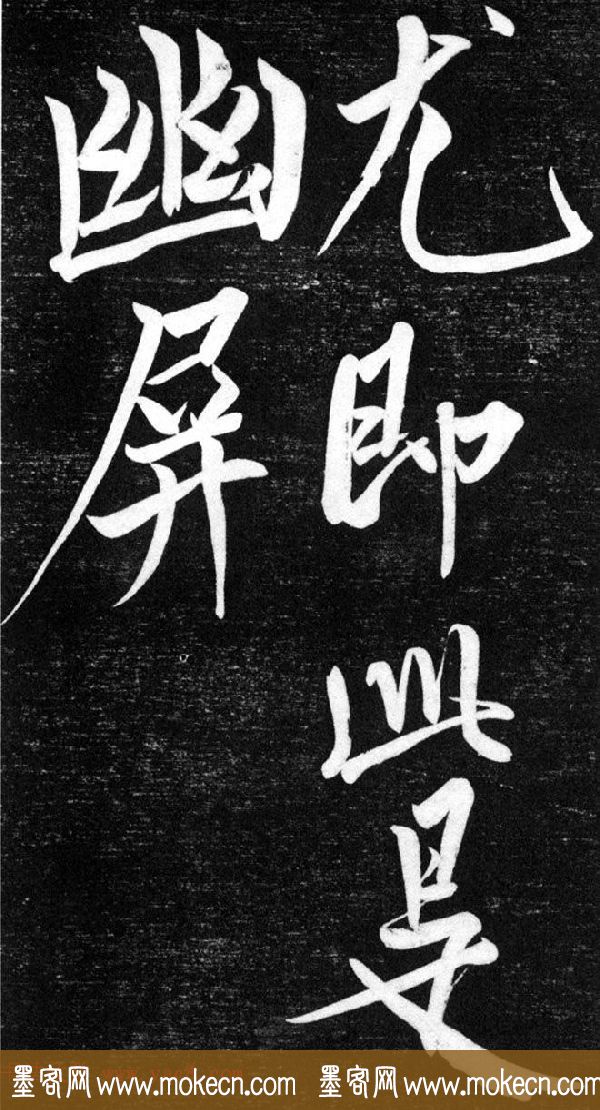 尤即此是
幽屏
墨客网 www.mokecn.com 墨客网 www.mokecn.com